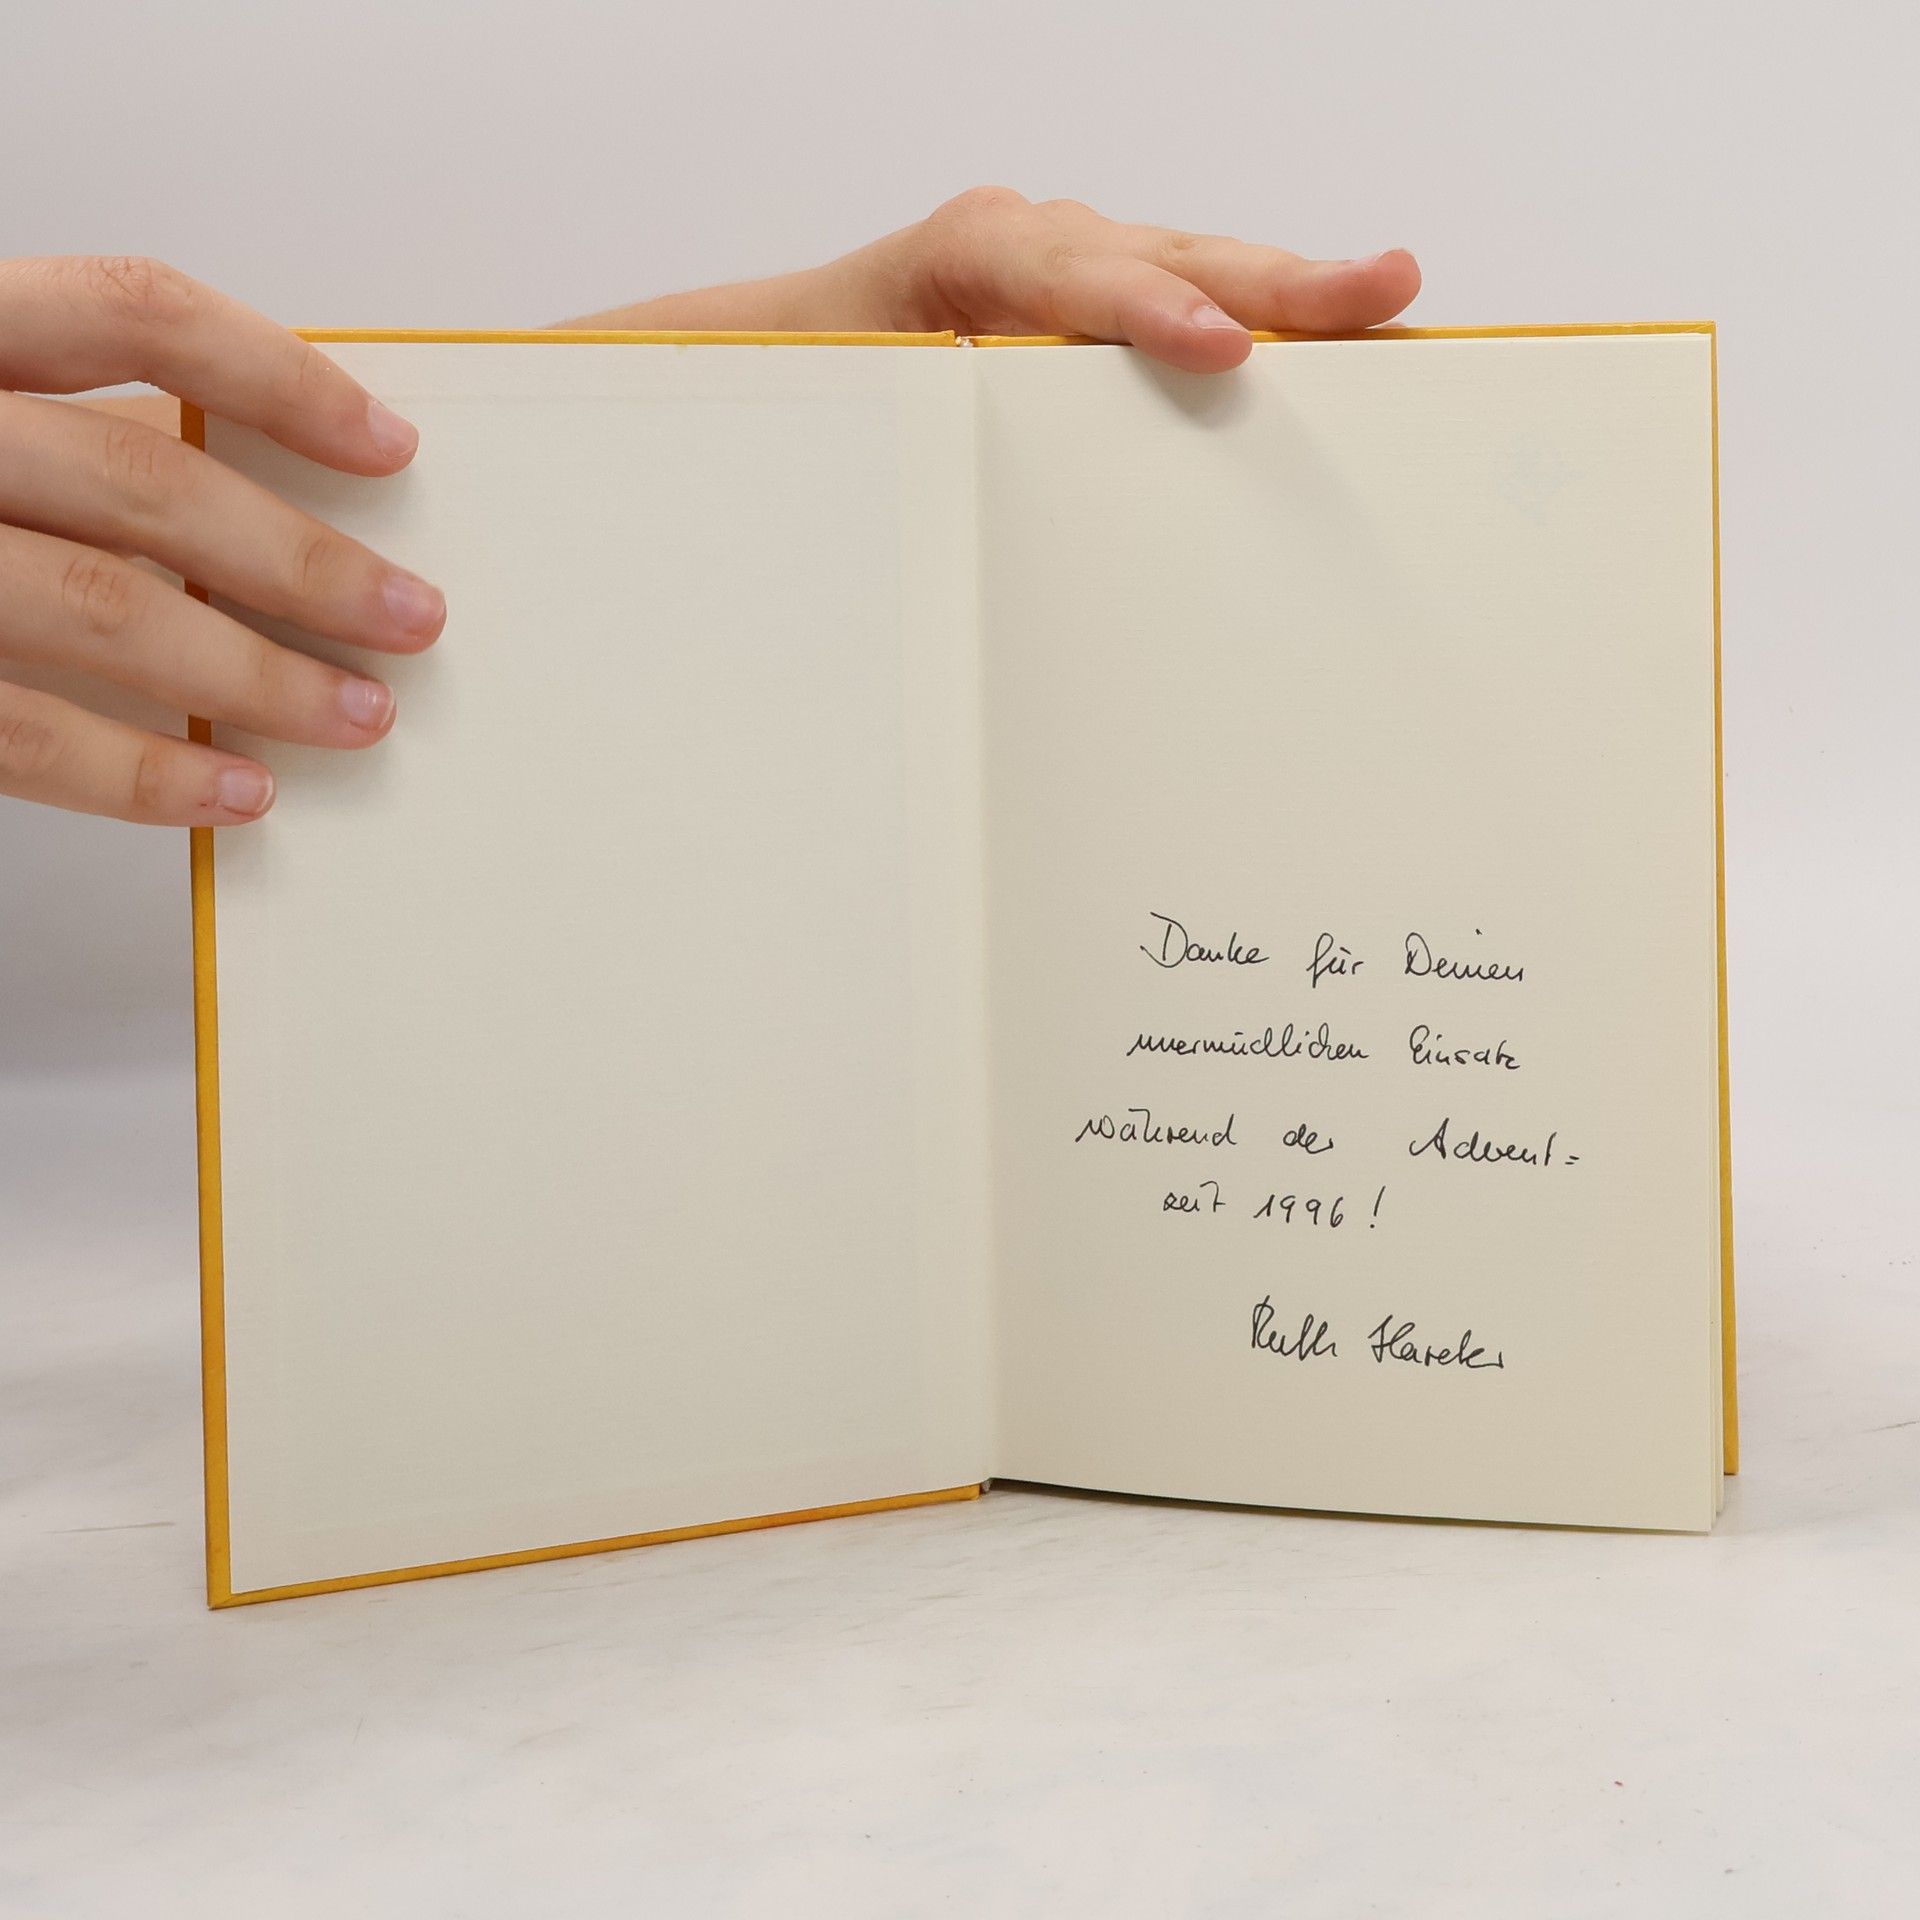 Danke für Deinen
unermüdlichen Einsatz
während der Advent=
zeit 1996!
Ruth